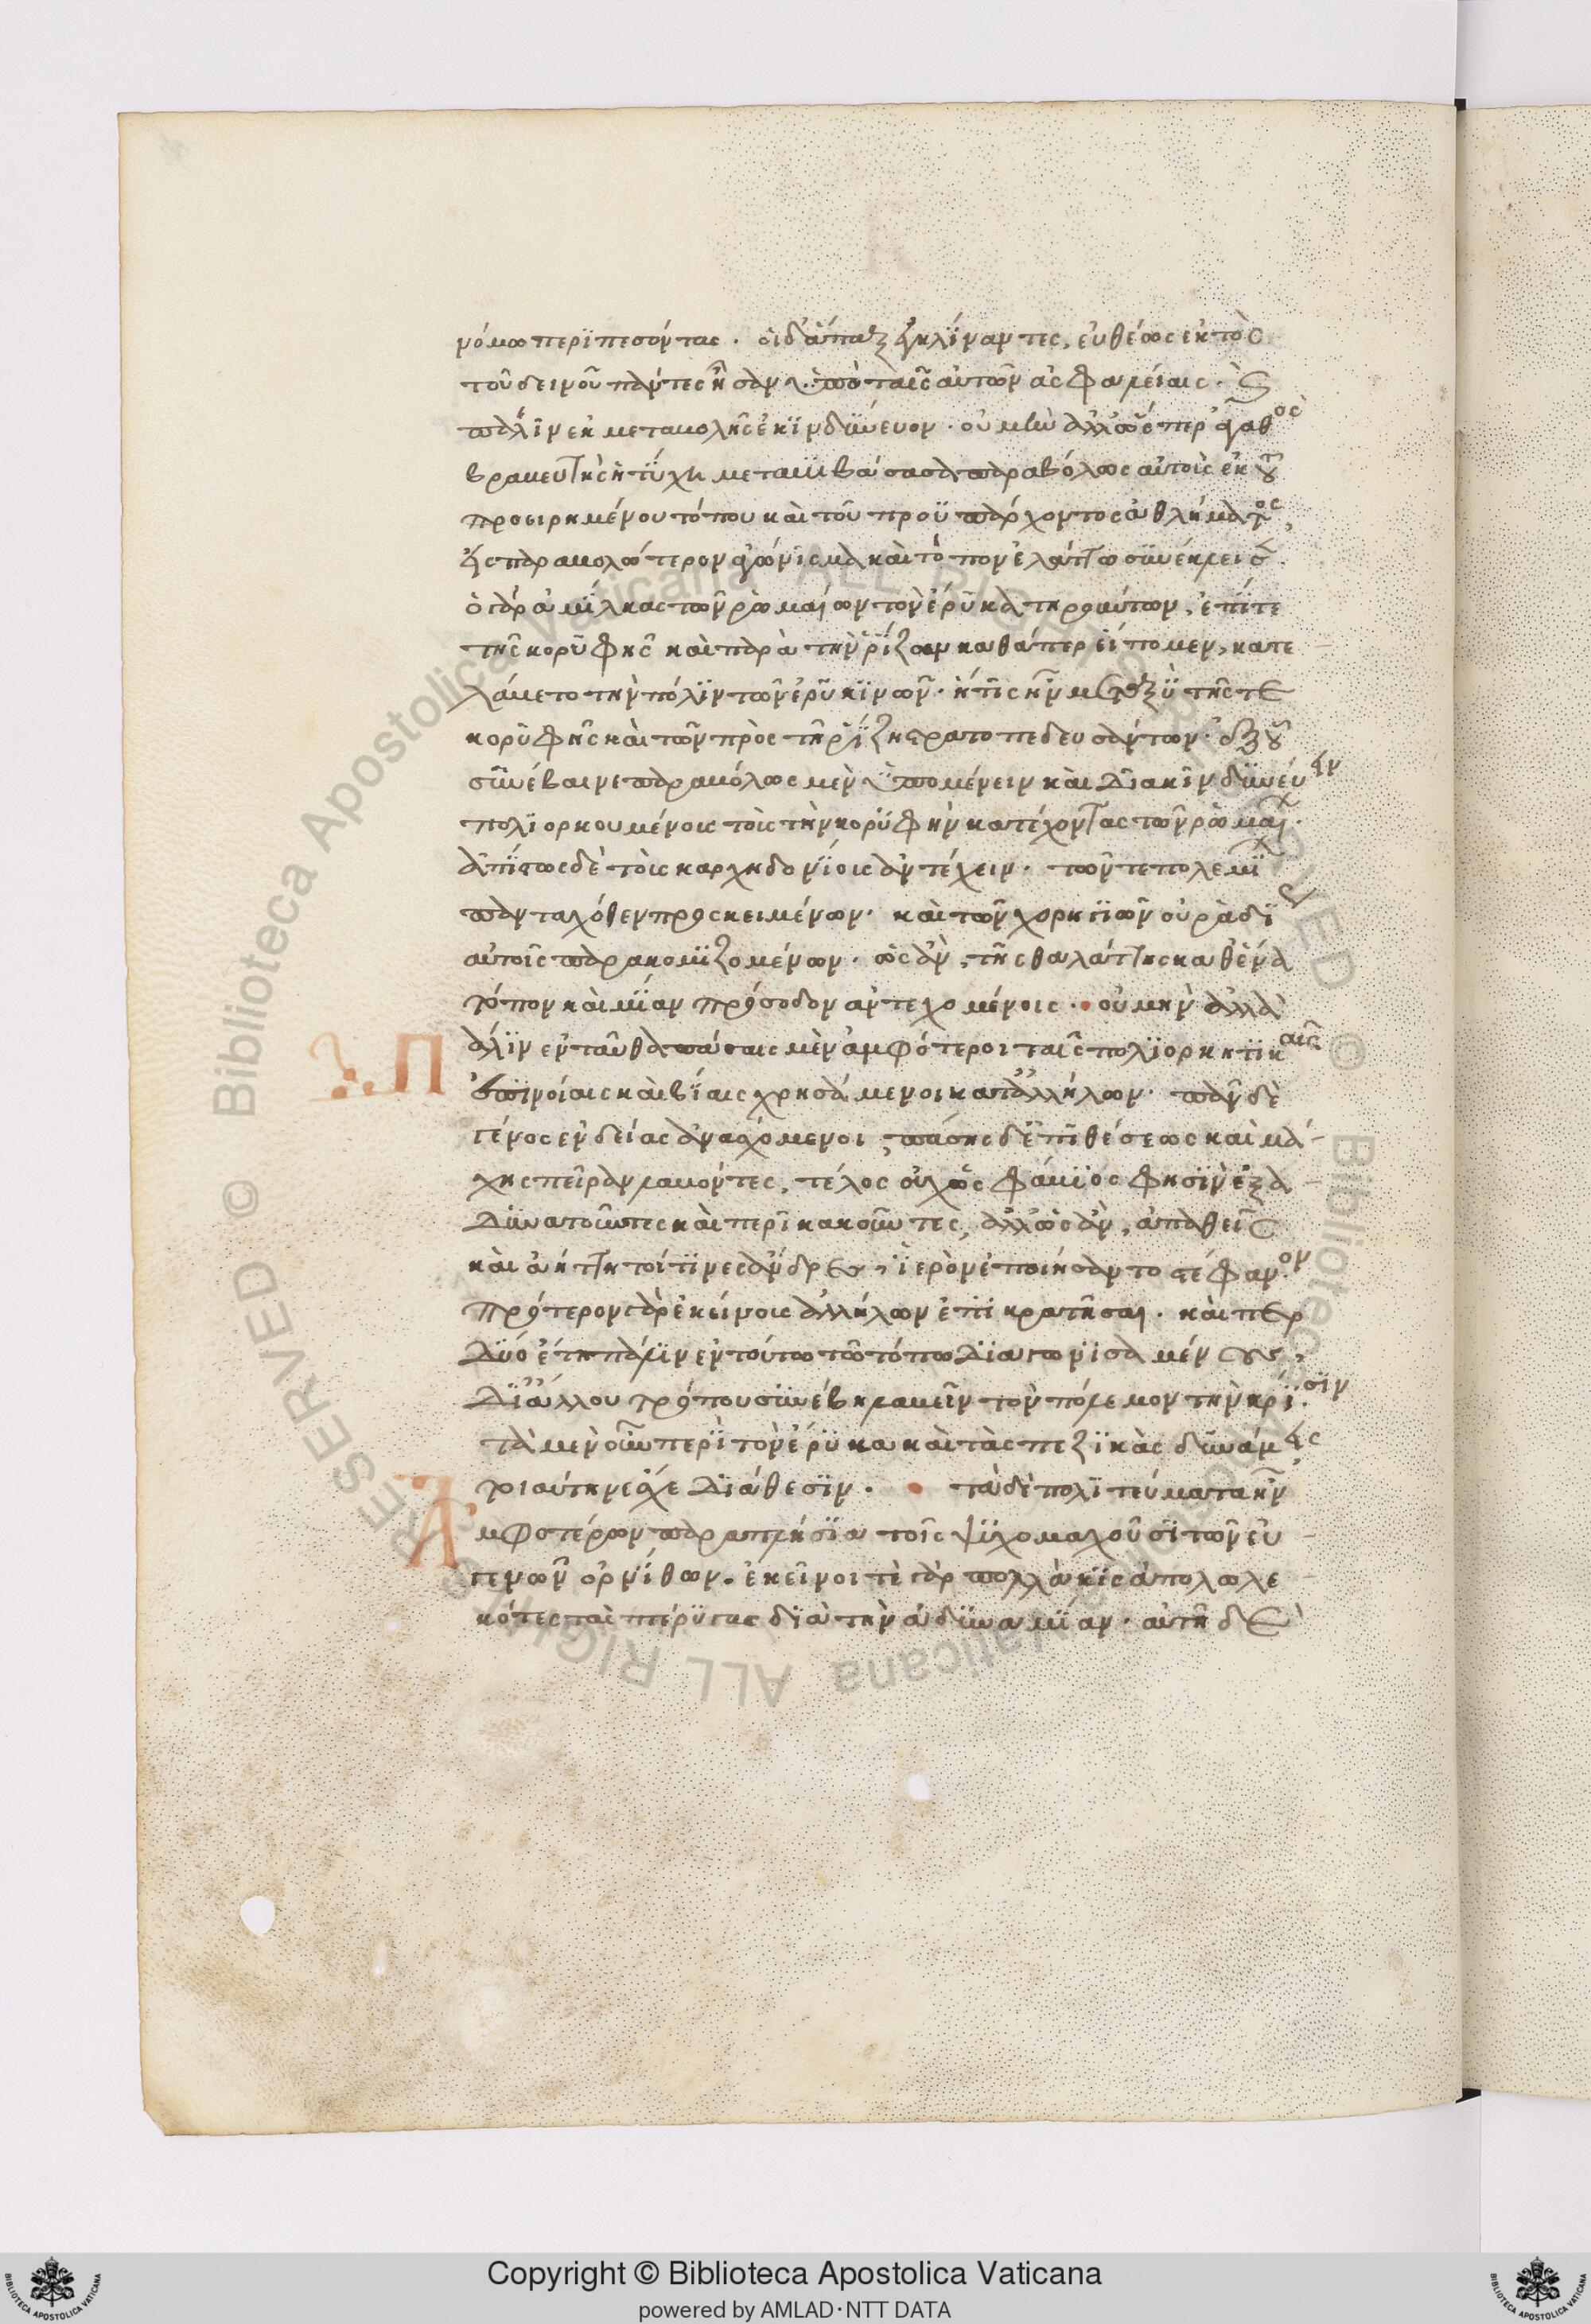 νόμω περϊπεσόντας . οἱ δ' ἅπαξ ἐγκλίναντες, εὐθέως ἐκτὸς
τοῦ δεινοῦ πάντες ἦσαν ὑπὸ ταῖς αὑτῶν ἀσφαλείαις · καὶ
πάλϊν ἐκ μεταβολῆς ἐκϊνδύνευον · οὐ μὴν ἀλλ' ὥσπερ ἀγαθὸς
βραβευτὴς ἡ τύχη μεταβιβάσασα παραβόλως αὐτοὺς ἐκ τοῦ
προειρημένου τόπου καὶ τοῦ προϋπάρχοντος ἀθλήματος,
εἰς παραβολώτερον ἀγώνισμα καὶ τόπον ἐλάττω συνέκλεισε.
ὁ γὰρ ἀμίλκας τῶν ῥωμαίων τὸν ἔρυκα τηρούντων, ἐπί τε
τῆς κορυφῆς καὶ παρὰ τὴν ῥίζαν καθάπερ εἴπομεν, κατε
λάβετο τὴν πόλϊν τῶν ἐρυκϊνῶν · ἥτις ἦν μεταξὺ τῆς τε
κορυφῆς καὶ τῶν πρὸς τῇ ῥίζῃ στρατοπεδευσάντων · ἐξ οὗ
συνέβαινε παραβόλως μὲν ὑπομένειν καὶ διακινδυνεύειν
πολϊορκουμένοις τοῖς τὴν κορυφὴν κατέχοντας τῶν ῥωμαίων.
ἀπίστως δὲ τοῖς καρχηδονίοις ἀντέχειν · τῶν τε πολεμίων
πανταχόθεν προσκειμένων · καὶ τῶν χορηγιῶν οὐ ῥαδίως
αὐτοῖς παρακομιζομένων · ὡς ἂν, τῆς θαλάττης καθ' ἕνα
τόπον καὶ μίαν πρόσοδον ἀντεχομένοις · οὐ μὴν ἀλλὰ
Πάλϊν ἐνταῦθα πάσαις μὲν ἀμφότεροι ταῖς πολϊορκητϊκαῖς
ἐπινοίαις καὶ βίαις χρησάμενοι κατ' ἀλλήλων · πᾶν δὲ
γένος ἐνδείας ἀνασχόμενοι, πάσης δ' ἐπιθέσεως καὶ μά
χης πεῖραν λαβόντες, τέλος οὐχ ὡς φάβϊος φησὶν ἐξα
δυνατοῦντες καὶ περικακοῦντες, ἀλλ' ὡς ἂν, ἀπαθεῖς
καὶ ἀήττητοί τϊνες ἄνδρες, ἱερὸν ἐποιήσαντο στέφανον.
πρότερον γὰρ ἐκείνοις ἀλλήλων ἐπικρατῆσαι · καίπερ
δύο ἔτη πάλϊν ἐν τούτω τῶ τόπω διαγωνισαμένους,
δι' ἄλλου τρόπου συνέβη λαβεῖν τὸν πόλεμον τὴν κρίσϊν.
τὰ μὲν οὖν περὶ τὸν ἔρυκα καὶ τὰς πεζϊκὰς δυνάμεις
τοιαύτην ἔσχε διάθεσϊν · τὰ δὲ πολϊτεύματα ἦν
Ἀμφοτέρων παραπλήσϊα τοῖς ψυχομαχοῦσι τῶν εὐ
γενῶν ὀρνίθων. ἐκεῖνοί τε γὰρ πολλάκις ἀπολωλε
κότες τὰς πτέρυγας διὰ τὴν ἀδυναμίαν · αὐτῇ δὲ